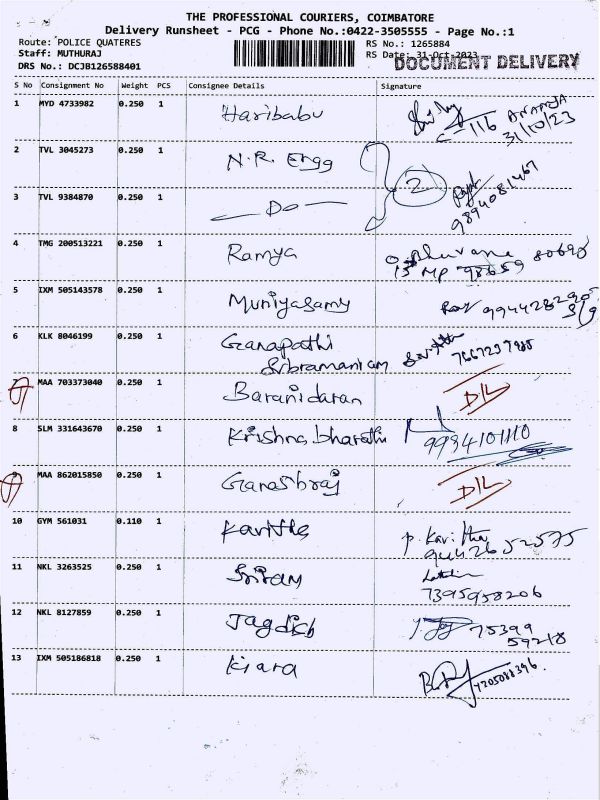 THE PROFESSIONAL COURIERS, COIMBATORE
Delivery Runsheet - PCG - Phone No.:0422-3505555 - Page No.:1
Route: POLICE QUATERES RS No.: 1265884
Staff: MUTHURAJ RS Date: 31-Oct-2023
DOCUMENT DELIVERY
DRS No.: DCJB126588401
S No Consignment No Weight PCS Consignee Details Signature
1 MYD 4733982 0.250 1 Haribabu
C-116 ANANDA
31/10/23
2 TVL 3045273 0.250 1 N.R. Engg
2
3 TVL 9384870 0.250 1 — Do —
9894081467
4 TMG 200513221 0.250 1 Ramya
5 IXM 505143578 0.250 1 Muniyasamy
6 KLK 8046199 0.250 1 Ganapathi
Subramaniam
7 MAA 703373040 0.250 1 Baranidaran D/L
8 SLM 331643670 0.250 1 Krishna bharathi 9994101110
9 MAA 862015850 0.250 1 Ganashraj D/L
10 GYM 561031 0.110 1 Kavitha P. Kavitha
11 NKL 3263525 0.250 1 Sriram
7395958206
12 NKL 8127859 0.250 1 Jagdish 75399
59218
13 IXM 505186818 0.250 1 Kiara